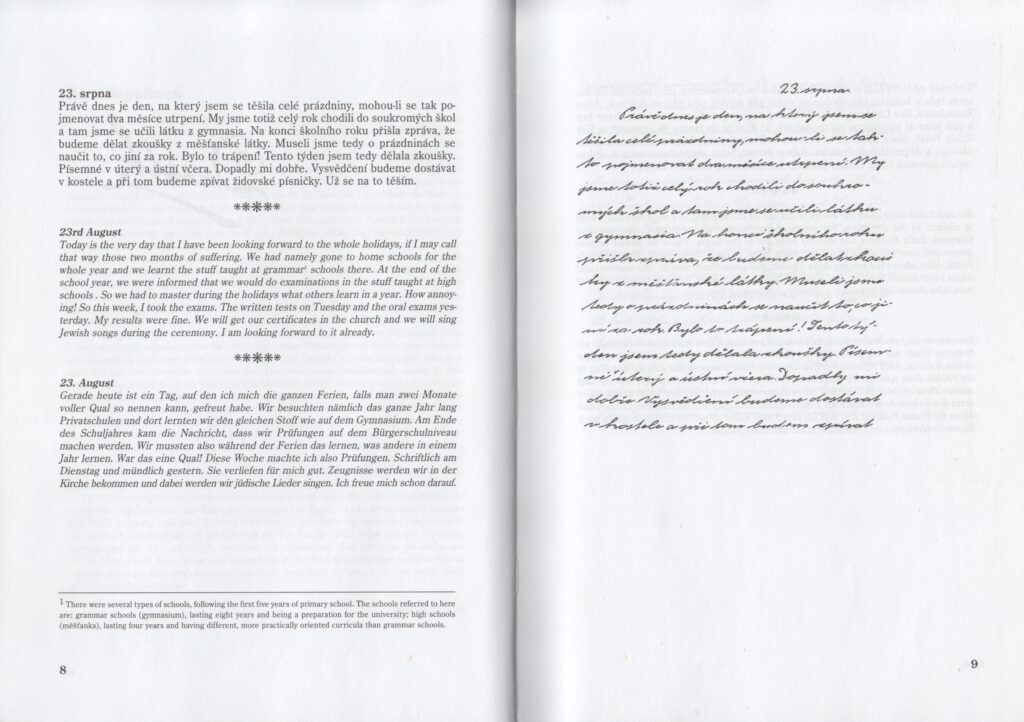 23. srpna
Právě dnes je den, na který jsem se těšila celé prázdniny, mohou-li se tak po-
jmenovat dva měsíce utrpení. My jsme totiž celý rok chodili do soukromých škol
a tam jsme se učili látku z gymnasia. Na konci školního roku přišla zpráva, že
budeme dělat zkoušky z měšťanské látky. Museli jsme tedy o prázdninách se
naučit to, co jiní za rok. Bylo to trápení! Tento týden jsem tedy dělala zkoušky.
Písemné v úterý a ústní včera. Dopadly mi dobře. Vysvědčení budeme dostávat
v kostele a při tom budeme zpívat židovské písničky. Už se na to těším.
*****
23rd August
Today is the very day that I have been looking forward to the whole holidays, if I may call
that way those two months of suffering. We had namely gone to home schools for the
whole year and we learnt the stuff taught at grammar¹ schools there. At the end of the
school year, we were informed that we would do examinations in the stuff taught at high
schools . So we had to master during the holidays what others learn in a year. How annoy-
ing! So this week, I took the exams. The written tests on Tuesday and the oral exams yes-
terday. My results were fine. We will get our certificates in the church and we will sing
Jewish songs during the ceremony. I am looking forward to it already.
*****
23. August
Gerade heute ist ein Tag, auf den ich mich die ganzen Ferien, falls man zwei Monate
voller Qual so nennen kann, gefreut habe. Wir besuchten nämlich das ganze Jahr lang
Privatschulen und dort lernten wir den gleichen Stoff wie auf dem Gymnasium. Am Ende
des Schuljahres kam die Nachricht, dass wir Prüfungen auf dem Bürgerschulniveau
machen werden. Wir mussten also während der Ferien das lernen, was andere in einem
Jahr lernen. War das eine Qual! Diese Woche machte ich also Prüfungen. Schriftlich am
Dienstag und mündlich gestern. Sie verliefen für mich gut. Zeugnisse werden wir in der
Kirche bekommen und dabei werden wir jüdische Lieder singen. Ich freue mich schon darauf.
1 There were several types of schools, following the first five years of primary school. The schools referred to here
are: grammar schools (gymnasium), lasting eight years and being a preparation for the university; high schools
(měšťanka), lasting four years and having different, more practically oriented curricula than grammar schools.
8
23. srpna.
Právě dnes je den, na který jsem se
těšila celé prázdniny, mohou-li se tak-
to pojmenovat dva měsíce utrpení. My
jsme totiž celý rok chodili do soukro-
mých škol a tam jsme se učili látku
z gymnasia. Na konci školního roku
přišla zpráva, že budeme dělat zkouš
ky z měšťanské látky. Museli jsme
tedy o prázdninách se naučit to, co ji-
ní za rok. Bylo to trápení! Tento tý-
den jsem tedy dělala zkoušky. Písem
né v úterý a ústní včera. Dopadly mi
dobře. Vysvědčení budeme dostávat
v kostele a při tom budem zpívat
9